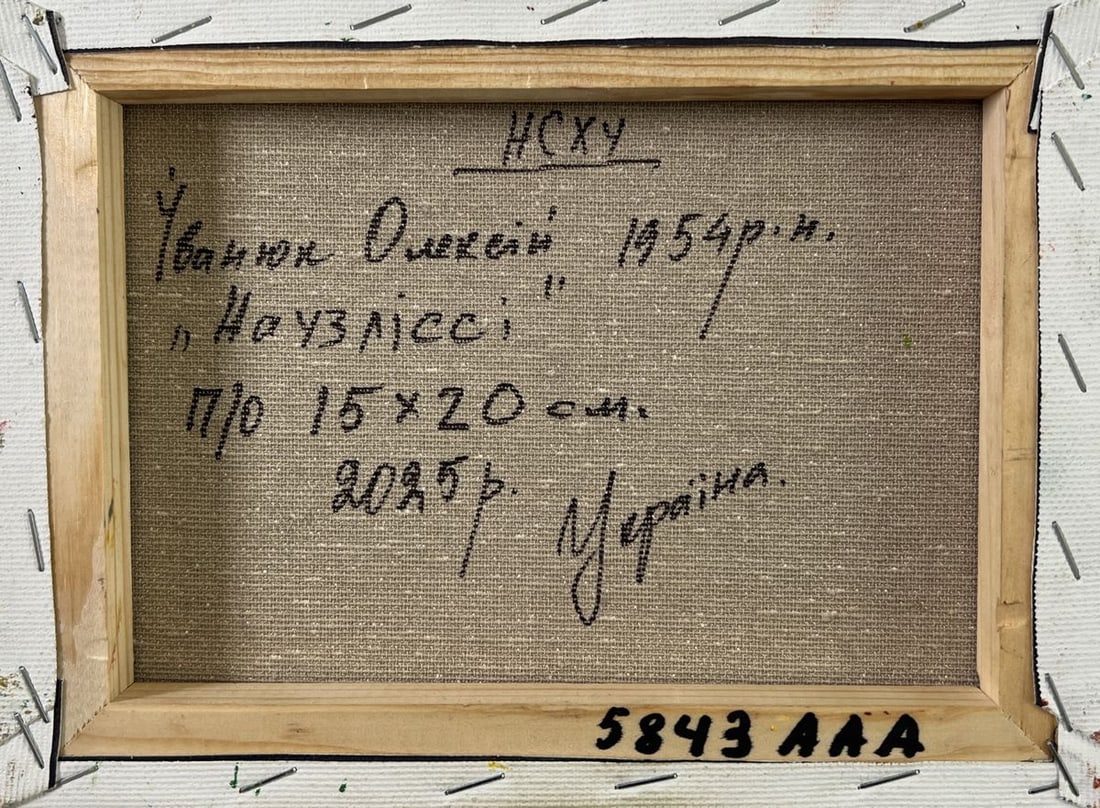 НСХУ
Іванюк Олексій 1954р.н.
„На узліссі"
п/о 15×20 см.
2025р. Україна.
5843 ААА